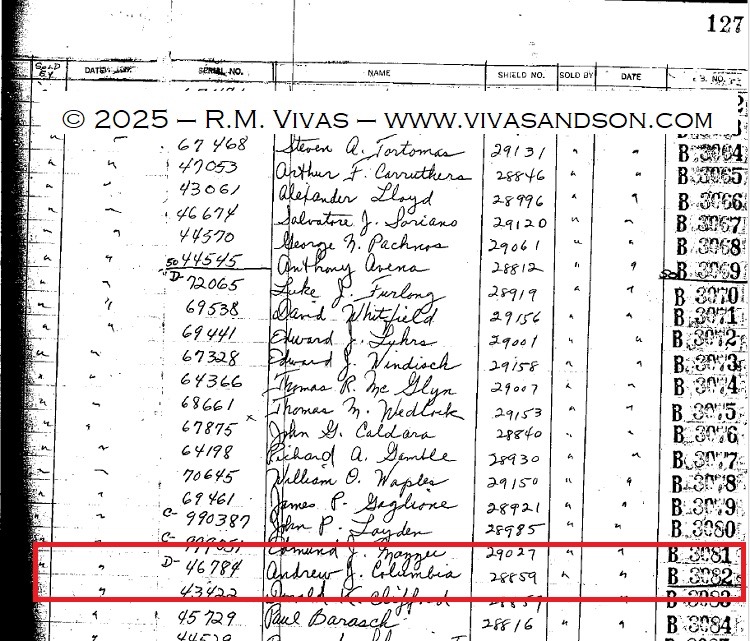 127
SOLD BY DATE SERIAL NO. NAME SHIELD NO. SOLD BY DATE NO.
© 2025 – R.M. VIVAS – WWW.VIVASANDSON.COM
" " 67468 Steven A. Tortomas 29131 " " B 3064
" " 47053 Arthur F. Carruthers 28846 " " B 3065
" " 43061 Alexander Lloyd 28996 " " B 3066
" " 46674 Salvatore J. Soriano 29120 " " B 3067
" " 44370 George N. Pachnos 29061 " " B 3068
" " 50 44545 Anthony Avena 28812 " " 50 B 3069
" " D- 72065 Luke J. Furlong 28919 " " B 3070
" " 69538 David Whitfield 29156 " " B 3071
" " 69441 Edward J. Lyhrs 29001 " " B 3072
" " 67328 Edward J. Windisch 29158 " " B 3073
" " 64366 Thomas R. Mc Glyn 29007 " " B 3074
" " 68661 x Thomas M. Wedlock 29153 " " B 3075
" " 67875 John G. Caldara 28840 " " B 3076
" " 64198 Richard A. Gemble 28930 " " B 3077
" " 70645 William O. Waples 29150 " " B 3078
" " 69461 James P. Gaglione 28921 " " B 3079
" " C- 990387 John P. Layden 28985 " " B 3080
" " C- Edmund J. 29027 " " B 3081
" " D- 46784 Andrew J. Columbia 28859 " " B 3082
" " 43422 Clifford " " B 3083
" " 45729 Paul Barasch 28816 " " B 3084